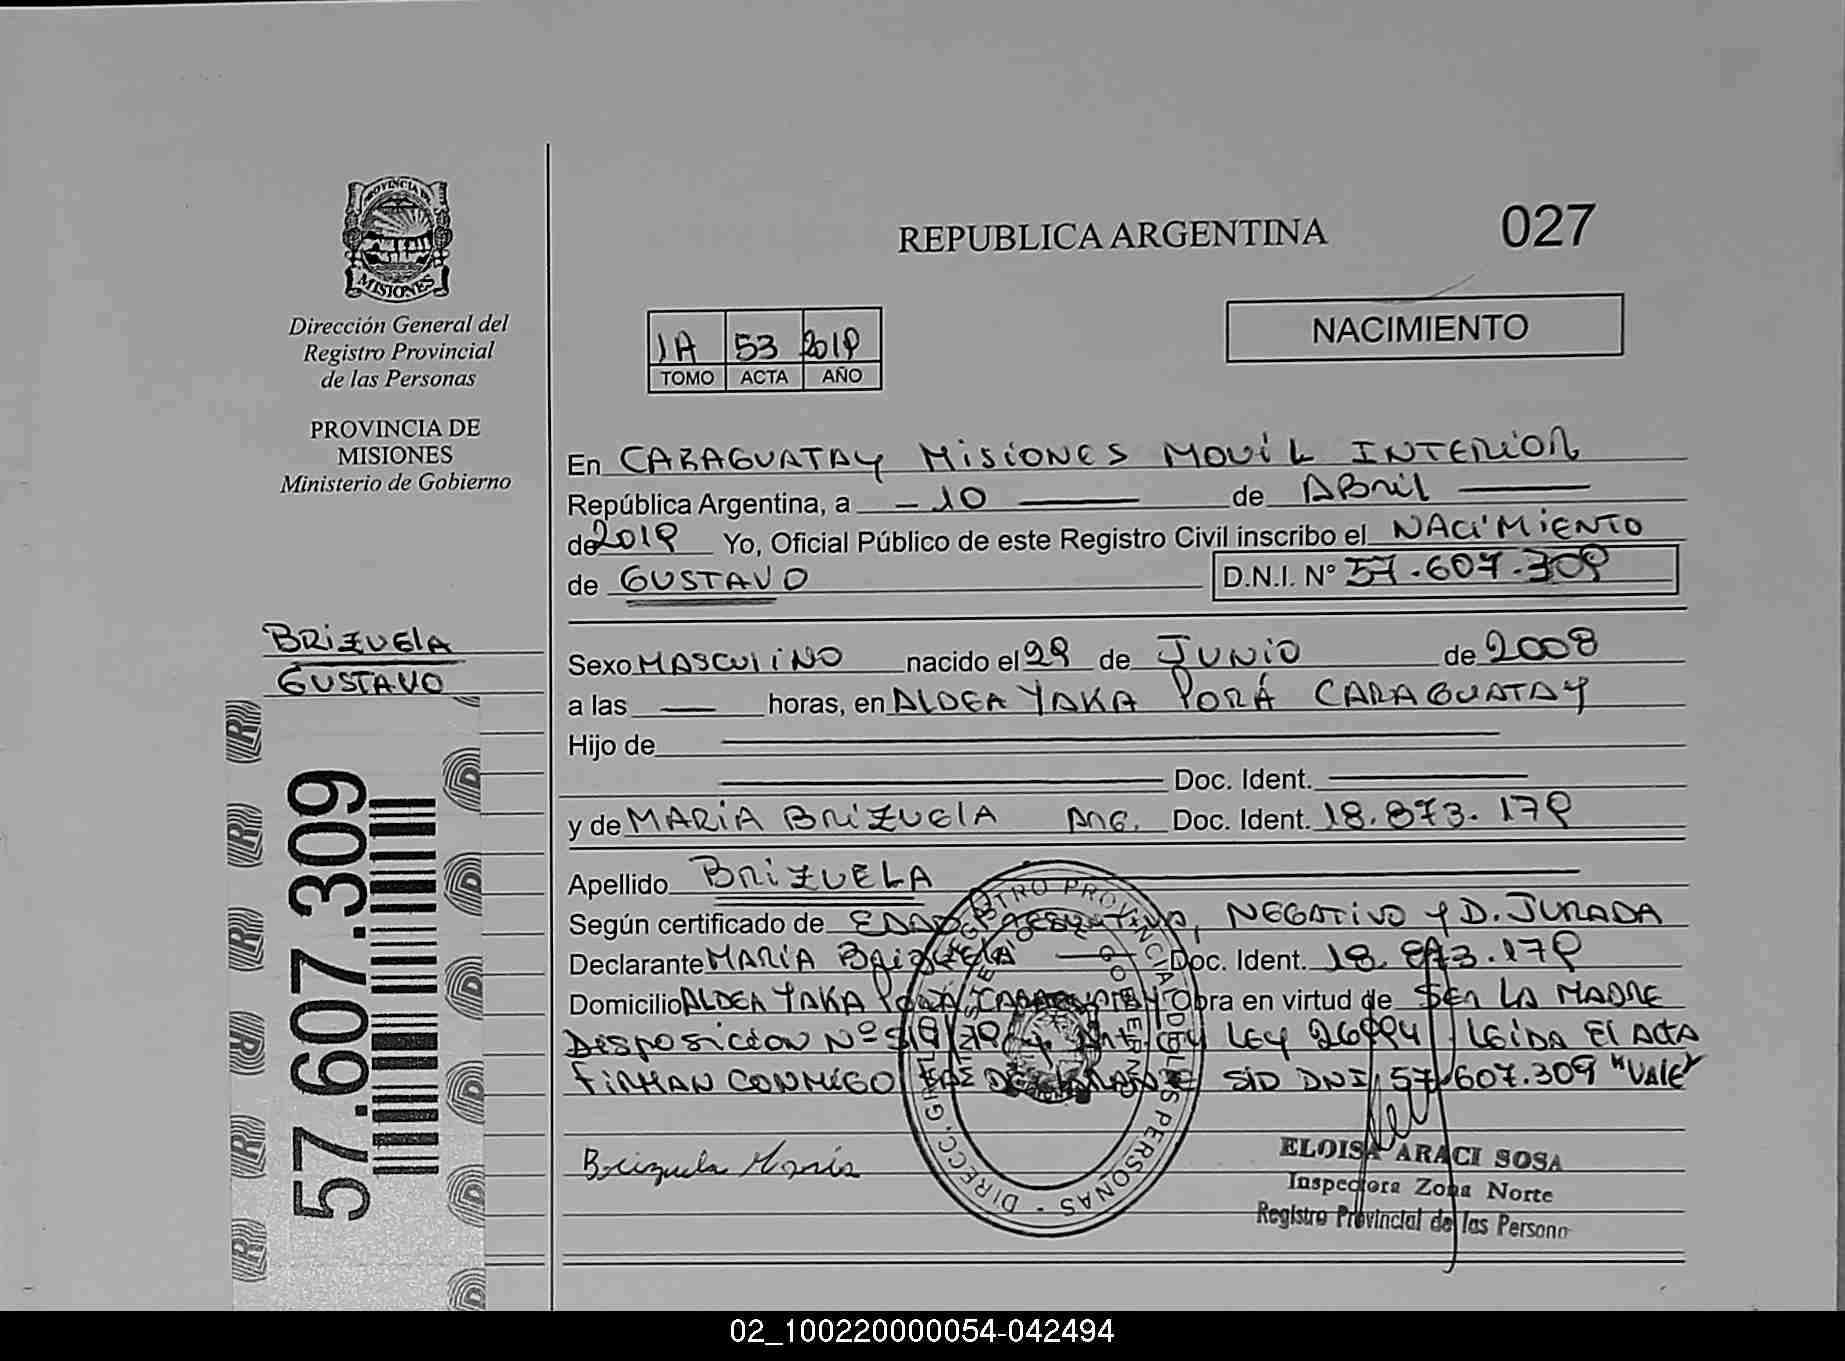 PROVINCIA DE
MISIONES
Dirección General del
Registro Provincial
de las Personas
PROVINCIA DE
MISIONES
Ministerio de Gobierno
BRIZUELA
GUSTAVO
57.607.309
REPUBLICA ARGENTINA
027
1A 53 2019
TOMO ACTA AÑO
NACIMIENTO
En CARAGUATAY MISIONES MOVIL INTERIOR
República Argentina, a - 10 de ABRIL
de 2019 Yo, Oficial Público de este Registro Civil inscribo el NACIMIENTO
de GUSTAVO D.N.I. N° 57.607.309
Sexo MASCULINO nacido el 29 de JUNIO de 2008
a las — horas, en ALDEA YAKA PORÁ CARAGUATAY
Hijo de
Doc. Ident.
y de MARIA BRIZUELA ARG. Doc. Ident. 18.873.179
Apellido BRIZUELA
Según certificado de EDAD, NEGATIVO Y D. JURADA
Declarante MARIA BRIZUELA — Doc. Ident. 18.873.179
Domicilio ALDEA YAKA PORA CARAGUATAY Obra en virtud de SER LA MADRE
DISPOSICION Nº LEY 26994 LEIDA El ActA
FIRMAN CONMIGO S/D DNI 57.607.309 "VALE"
Brizuela Maria
DIRECC. GRAL. REGISTRO PROVINCIAL DE LAS PERSONAS -
MINISTERIO DE GOBIERNO
ELOISA ARACI SOSA
Inspectora Zona Norte
Registro Provincial de las Persono
02_100220000054-042494